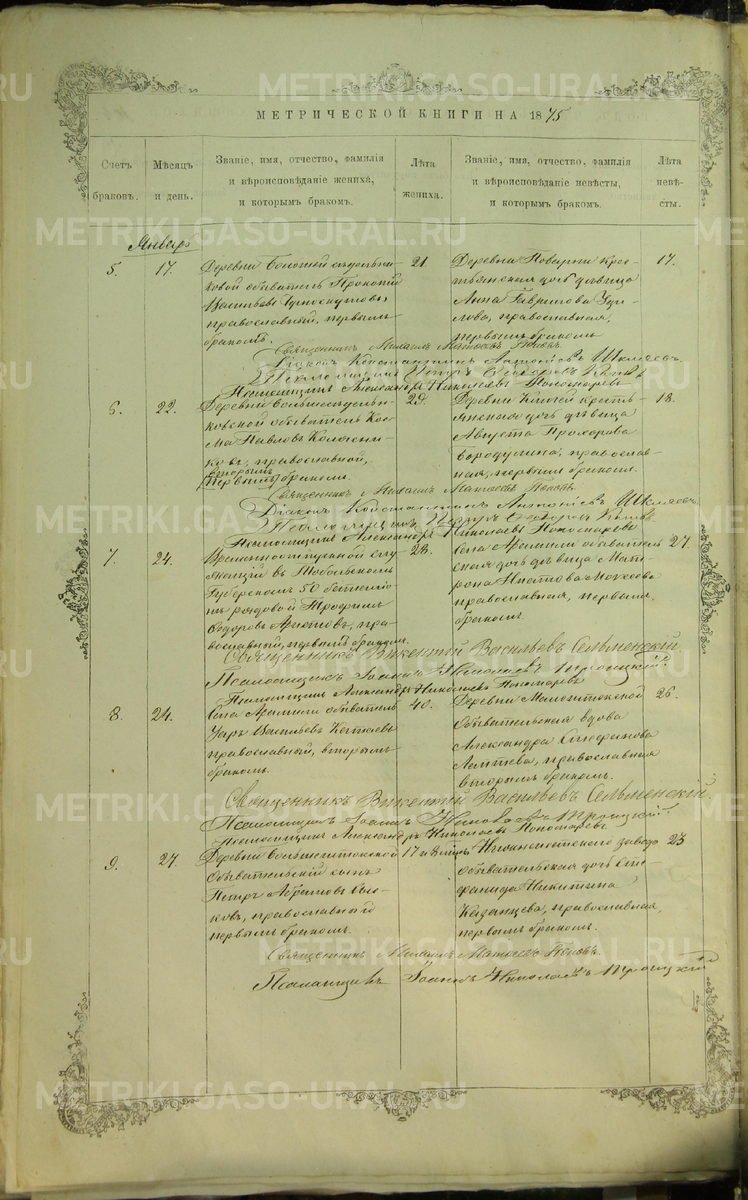 МЕТРИЧЕСКОЙ КНИГИ НА 1875
Счетъ браковъ.
Мѣсяцъ и день.
Званіе, имя, отчество, фамилія
и вѣроисповѣданіе жениха,
и которымъ бракомъ.
Лѣта жениха.
Званіе, имя, отчество, фамилія
и вѣроисповѣданіе невѣсты,
и которымъ бракомъ.
Лѣта невѣсты.
Январь
5. 17.
Деревни
ковой обыватель Прокопій
Васильевъ
православный, первымъ
бракомъ.
21.
Деревни Поварни крес-
тьянская дочь дѣвица
Анна Гаврилова
лова, православная,
первымъ бракомъ
17.
Священникъ Михаилъ Матѳеевъ Поповъ.
Діаконъ Константинъ Антоніевъ Шкляевъ.
Псаломщикъ Петръ Ѳедоровъ
Псаломщикъ Александръ Николаевъ Пономаревъ
6. 22.
Деревни Большеседельни-
ковской обыватель Кос-
ма Павловъ
православной,
вторымъ
первымъ бракомъ.
29.
Деревни Ключей кресть-
янская дочь дѣвица
Августа Прохорова
Бородулина, православ-
ная, первымъ бракомъ.
18.
Священникъ Михаилъ Матѳеевъ Поповъ.
Діаконъ Константинъ Антоніевъ Шкляевъ
Псаломщикъ Петръ Ѳедоровъ
Псаломщикъ Александръ Николаевъ Пономаревъ
7. 24.
Временноотпускной слу-
жащій въ Тобольскомъ
Губернскомъ 50 баталіо-
нѣ рядовой Трофимъ
Ѳедоровъ Аристовъ, пра-
вославный, первымъ бракомъ.
28.
Села Арамили обыватель-
ская дочь дѣвица Мат-
рона
православная, первымъ
бракомъ.
27.
Священникъ Викентій Васильевъ Сельменскій
Псаломщикъ Іоаннъ Николаевъ Троицкій.
Псаломщикъ Александръ Николаевъ Пономаревъ
8. 24.
Села Арамили обыватель
Уаръ Васильевъ
православный, вторымъ
бракомъ.
40.
Деревни Малоистокской
обывательская вдова
Александра Стефанова
Лаптева, православная
вторымъ бракомъ.
26.
Священникъ Викентій Васильевъ Сельменскій.
Псаломщикъ Іоаннъ Николаевъ Троицкій.
Псаломщикъ Александръ Николаевъ Пономаревъ.
9. 27.
Деревни Большеистокской
обывательскій сынъ
Петръ Абрамовъ
ковъ, православный
первымъ бракомъ.
17
Нижнеисетскаго завода
обывательская дочь Сте-
фанида Никитина
Казанцева, православная,
первымъ бракомъ.
23
Священникъ Михаилъ Матѳеевъ Поповъ.
Псаломщикъ Іоаннъ Николаевъ Троицкій
METRIKI.GASO-URAL.RU